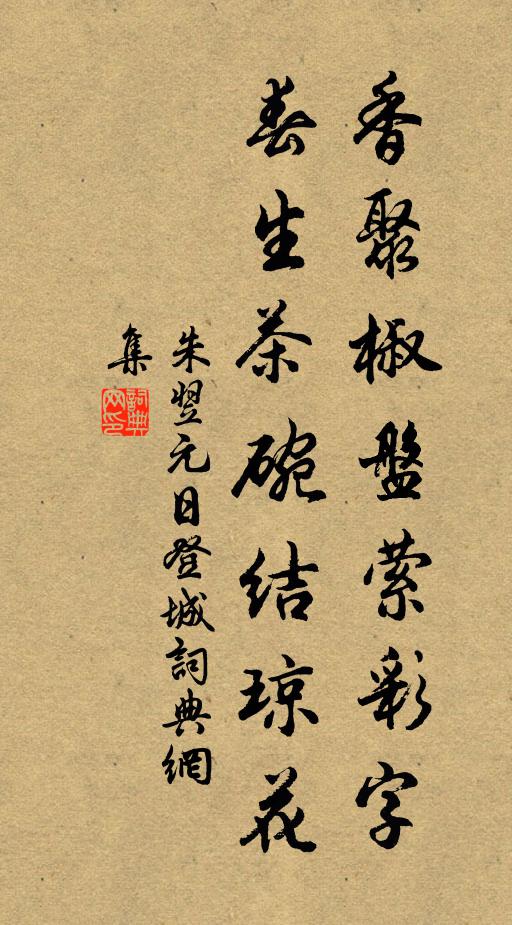 香聚椒盤萦彩字
春生茶碗结琼花
朱翌元日登城詞典網
集
詞典
网印